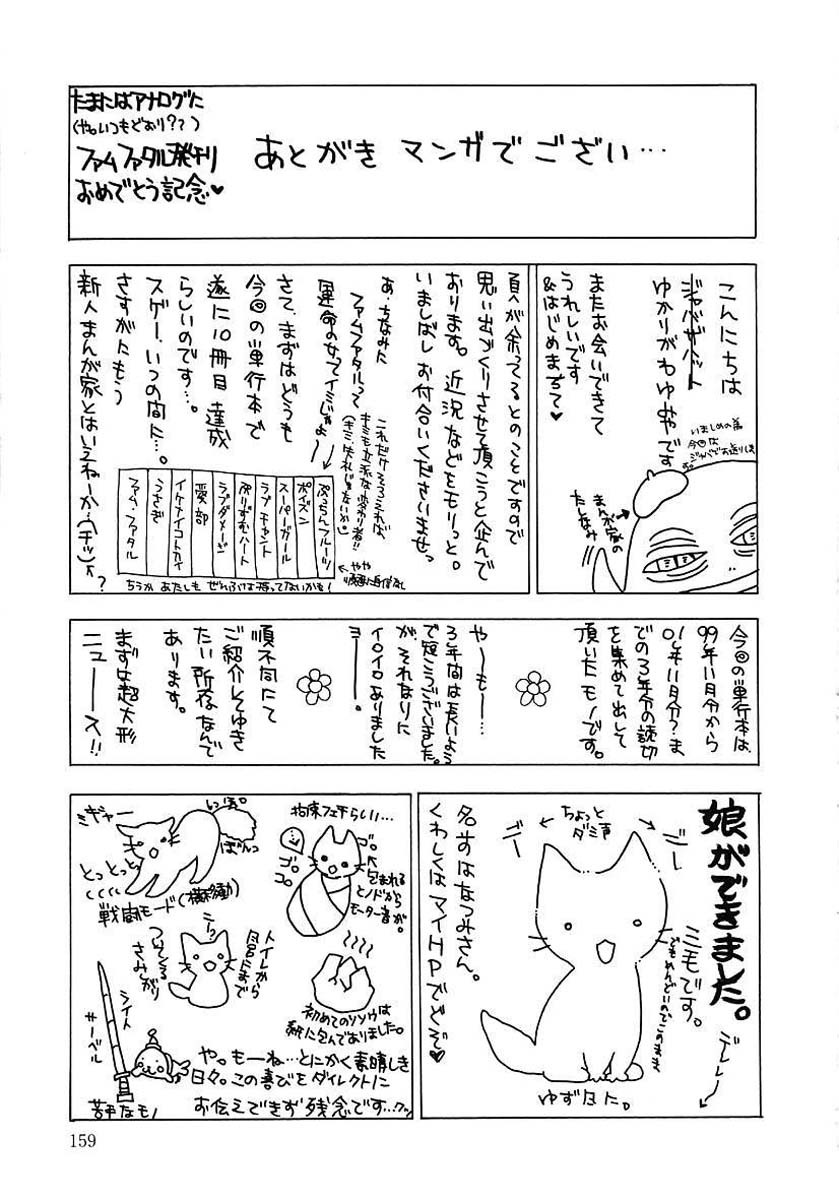 たまにはアナログに
(や。いつもどおり??)
ファムファタル発刊
おめでとう記念♥
あとがき マンガで ござい…
こんにちは
ジャバザハット
ゆかりがわゆみやです
いましめの為
今回は
ジャバでお送りしま
す。
またお会いできて
うれしいです
&はじめまちて♥
まんが家の
たしなみ
頁が余ってるとのことですので
思い出づくりさせて頂こうと企んで
おります。近況などをモリっと。
いましばしお付合いくださいませっ
あ、ちなみに
ファムファタルって
運命の女ってイミじゃよ〜
これだけそろえれば、
キミも立派な変わり者!!
(キミに失礼じゃないか。)
さて、まずはどうも
今回の単行本で
遂に10冊目達成
らしいのです…。
スゲー、いつの間に…。
さすがにもう
新人まんが家とはいえねーか。(チッ)←?
ぷっちんフルーツ
ポイズン
スーパーガール
ラブチャント
ぷりずむハート
ラブダメージ
愛部
イケナイコトカイ
うさぎ
ファム・ファタル
←やや
順番に自信なし
ちうか あたしも ぜんぶは持ってないかも!
今回の単行本は、
99年11月分から
01年11月分?ま
での3年分の読切
を集めて出して
頂いたモノです。
や〜も〜…
3年間は長いよう
で短こうございました。
が、それなりに
イロイロありました
ヨー。
順不同にて
ご紹介してゆき
たい所存なんで
あります。
まずは超大形
ニュース!!
娘ができました。
三毛です。
でもめんどいのでこのまま
デレレー
ちょっと
ダミ声
ゴー
ゴー
名まはなつみさん。
くわしくはマイHPでどぞ♥
ゆず日た。
拘束フェチらしい…
ゴロ
ゴロ
ゴロ
包まれる
とノドから
モーター音が。
ミギャー
しっぽ。
ぼんっ
とっとっとっ
戦闘モード(横移動)
トイレから
風呂たまで
ついてくる
さみしがり
初めてのソソウは
紙に包んでありました。
シイト
サーベル
苦手なモノ
や。も〜ね…とにかく素晴しき
日々。この喜びをダイレクトに
お伝えできず残念です…クッ
159